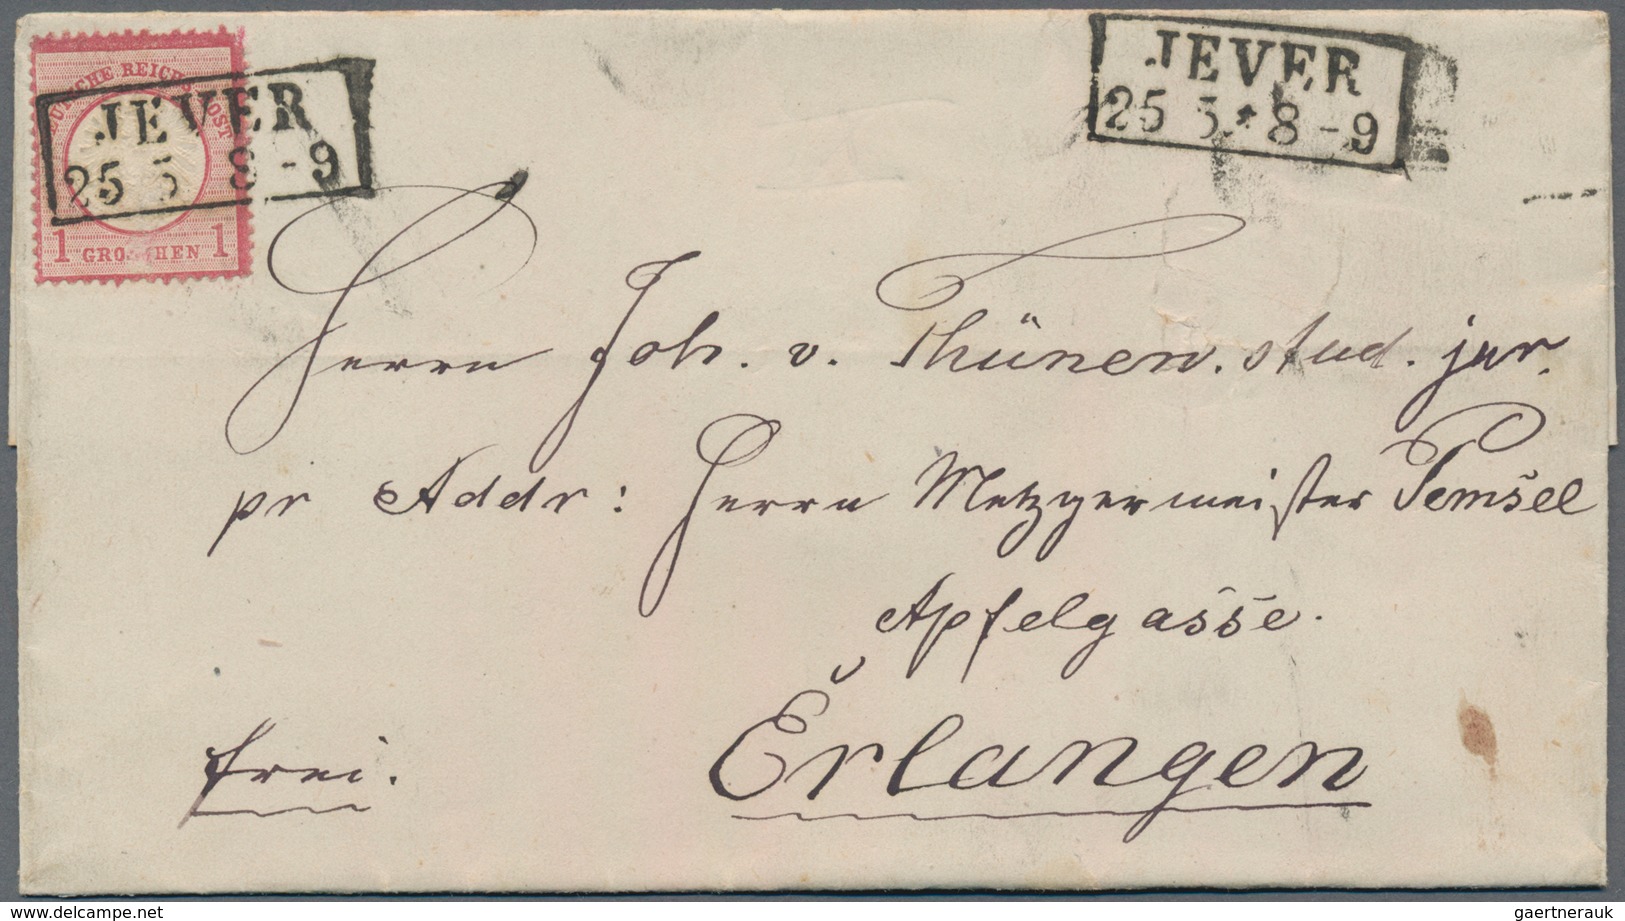 DEUTSCHE REICHS POST
JEVER
25 5 8-9
1 GROSCHEN 1
JEVER
25 5 * 8-9
Herrn Joh. v. Thünen. stud. jur.
pr Addr: Herrn Metzgermeister Temsel
Apfelgasse.
frei.
Erlangen
gaertnerauk